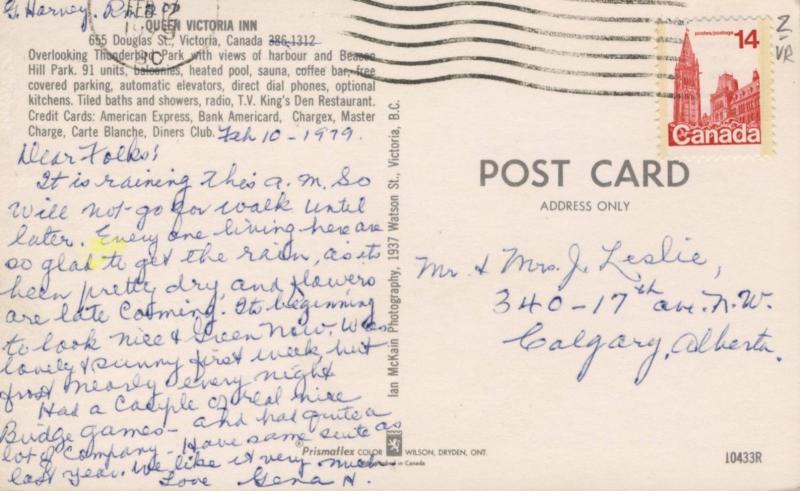 G Harvey. Rm 207
QUEEN VICTORIA INN
655 Douglas St., Victoria, Canada 386-1312
Overlooking Thunderbird Park with views of harbour and Beacon
Hill Park. 91 units, balconies, heated pool, sauna, coffee bar, free
covered parking, automatic elevators, direct dial phones, optional
kitchens. Tiled baths and showers, radio, T.V. King's Den Restaurant.
Credit Cards: American Express, Bank Americard, Chargex, Master
Charge, Carte Blanche, Diners Club.
Feb 10 - 1979.
Dear Folks:
It is raining this a.m. So
will not go for walk until
later. Every one living here are
so glad to get the rain, as its
been pretty dry, and flowers
are late coming. Its beginning
to look nice & Green Now. Was
lovely & sunny first week, but
frost nearly every night
Had a couple of real nice
Bridge games - and had quite a
lot of company - Have same suite as
last year. We like it very much.
Love Gena H.
Ian McKain Photography, 1937 Watson St., Victoria, B.C.
Prismaflex COLOR WILSON, DRYDEN, ONT.
in Canada
postes/postage
14
Canada
Z-
VR
POST CARD
ADDRESS ONLY
Mr. & Mrs. J. Leslie,
340-17th ave. N.W.
Calgary, Alberta.
10433R